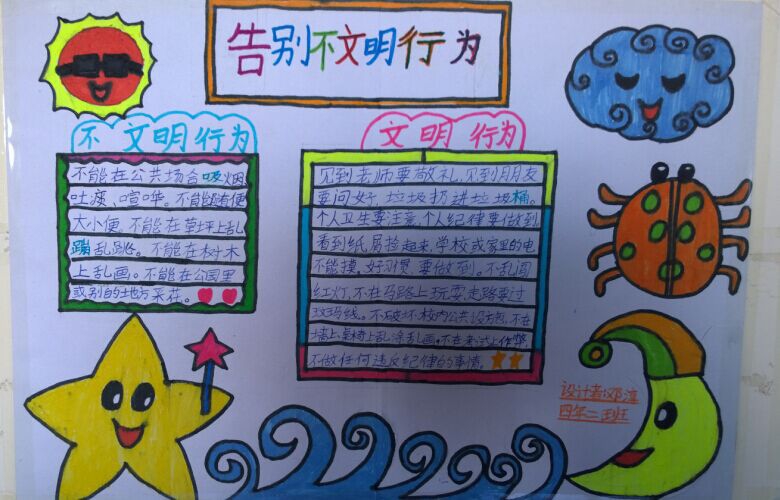 告别不文明行为
不文明行为
不能在公共场合吸烟、
吐痰、喧哗。不能随便
大小便。不能在草坪上乱
蹦乱跳。不能在树木
上乱画。不能在公园里
或别的地方采花。
文明行为
见到老师要敬礼,见到朋友
要问好,垃圾扔进垃圾桶。
个人卫生要注意,个人纪律要做到,
看到纸屑捡起来,学校或家里的电
不能摸。好习惯,要做到。不乱闯
红灯,不在马路上玩耍,走路要过
斑马线。不破坏校内公共设施,不在
墙上、桌椅上乱涂乱画。不在考试上作弊,
不做任何违反纪律的事情。
设计者:邓淳
四年二班